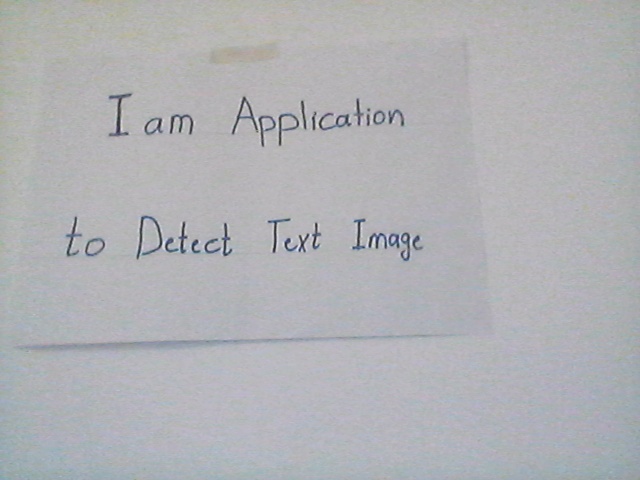 I am Application
to Detect Text Image